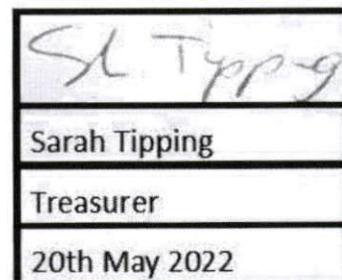 SL Tipping
Sarah Tipping
Treasurer
20th May 2022